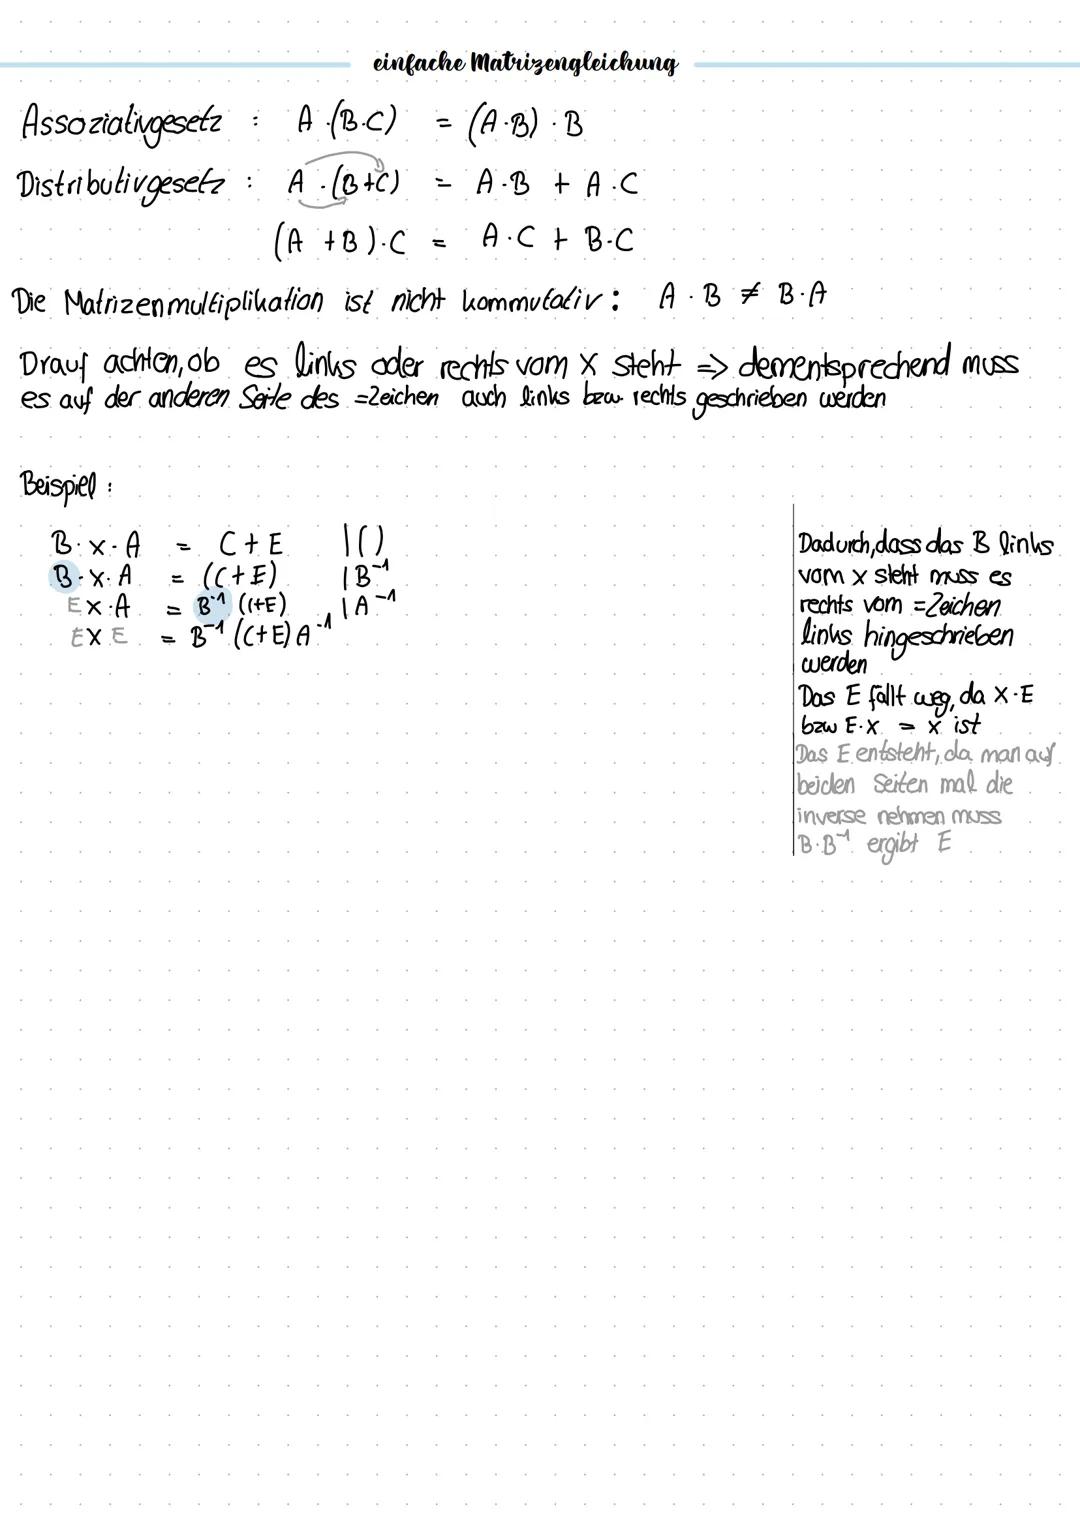 einfache Matrizengleichung
Assoziativgesetz : A·(B·C) = (A·B)·B
Distributivgesetz : A·(B+C) = A·B + A·C
(A+B)·C = A·C + B·C
Die Matrizenmultiplikation ist nicht kommutativ: A·B ≠ B·A
Drauf achten, ob es links oder rechts vom X steht => dementsprechend muss
es auf der anderen Seite des =Zeichen auch links bzw. rechts geschrieben werden
Beispiel:
B·X·A = C+E |()
B·X·A = (C+E) |B⁻¹
EX·A = B⁻¹(C+E) |A⁻¹
EXE = B⁻¹(C+E)A⁻¹
Dadurch, dass das B links
vom X steht muss es
rechts vom =Zeichen
links hingeschrieben
werden
Das E fällt weg, da X·E
bzw E·X = X ist
Das E entsteht, da man auf
beiden Seiten mal die
inverse nehmen muss
B·B⁻¹ ergibt E